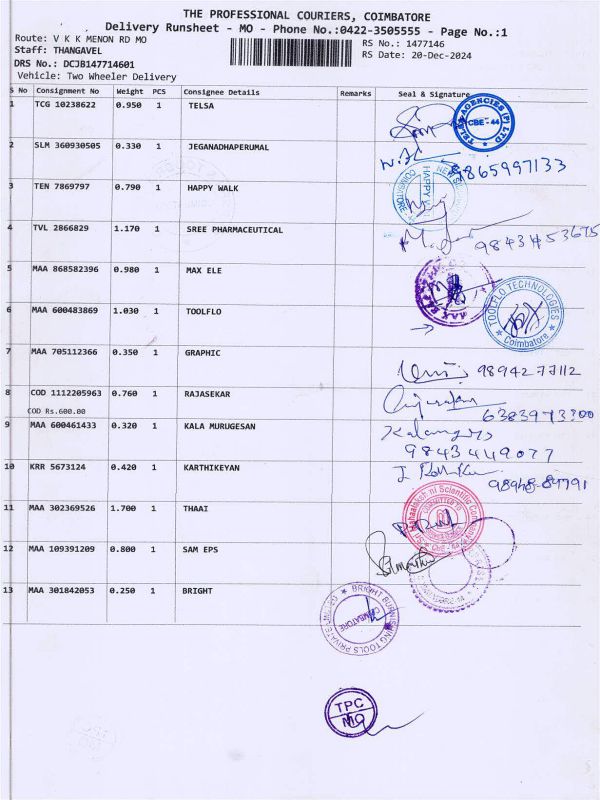 THE PROFESSIONAL COURIERS, COIMBATORE
Delivery Runsheet - MO - Phone No.:0422-3505555 - Page No.:1
Route: V K K MENON RD MO
RS No.: 1477146
Staff: THANGAVEL
RS Date: 20-Dec-2024
DRS No.: DCJB147714601
Vehicle: Two Wheeler Delivery
S No Consignment No Weight PCS Consignee Details Remarks Seal & Signature
1 TCG 10238622 0.950 1 TELSA
AGENCIES (P) LTD
CBE - 44
2 SLM 360930505 0.330 1 JEGANADHAPERUMAL
9865997133
3 TEN 7869797 0.790 1 HAPPY WALK
HAPPY
COIMBATORE
4 TVL 2866829 1.170 1 SREE PHARMACEUTICAL
9843453675
5 MAA 868582396 0.980 1 MAX ELE
6 MAA 600483869 1.030 1 TOOLFLO
TOOLFLO TECHNOLOGIES
* Coimbatore *
7 MAA 705112366 0.350 1 GRAPHIC
9894277112
8 COD 1112205963 0.760 1 RAJASEKAR
COD Rs.600.00
6383973300
9 MAA 600461433 0.320 1 KALA MURUGESAN
9843449077
10 KRR 5673124 0.420 1 KARTHIKEYAN
98948-84791
11 MAA 302369526 1.700 1 THAAI
Scientific Company
12 MAA 109391209 0.800 1 SAM EPS
13 MAA 301842053 0.250 1 BRIGHT
BRIGHT BURNISHING TOOLS PRIVATE LIMITED
COIMBATORE
TPC
MO